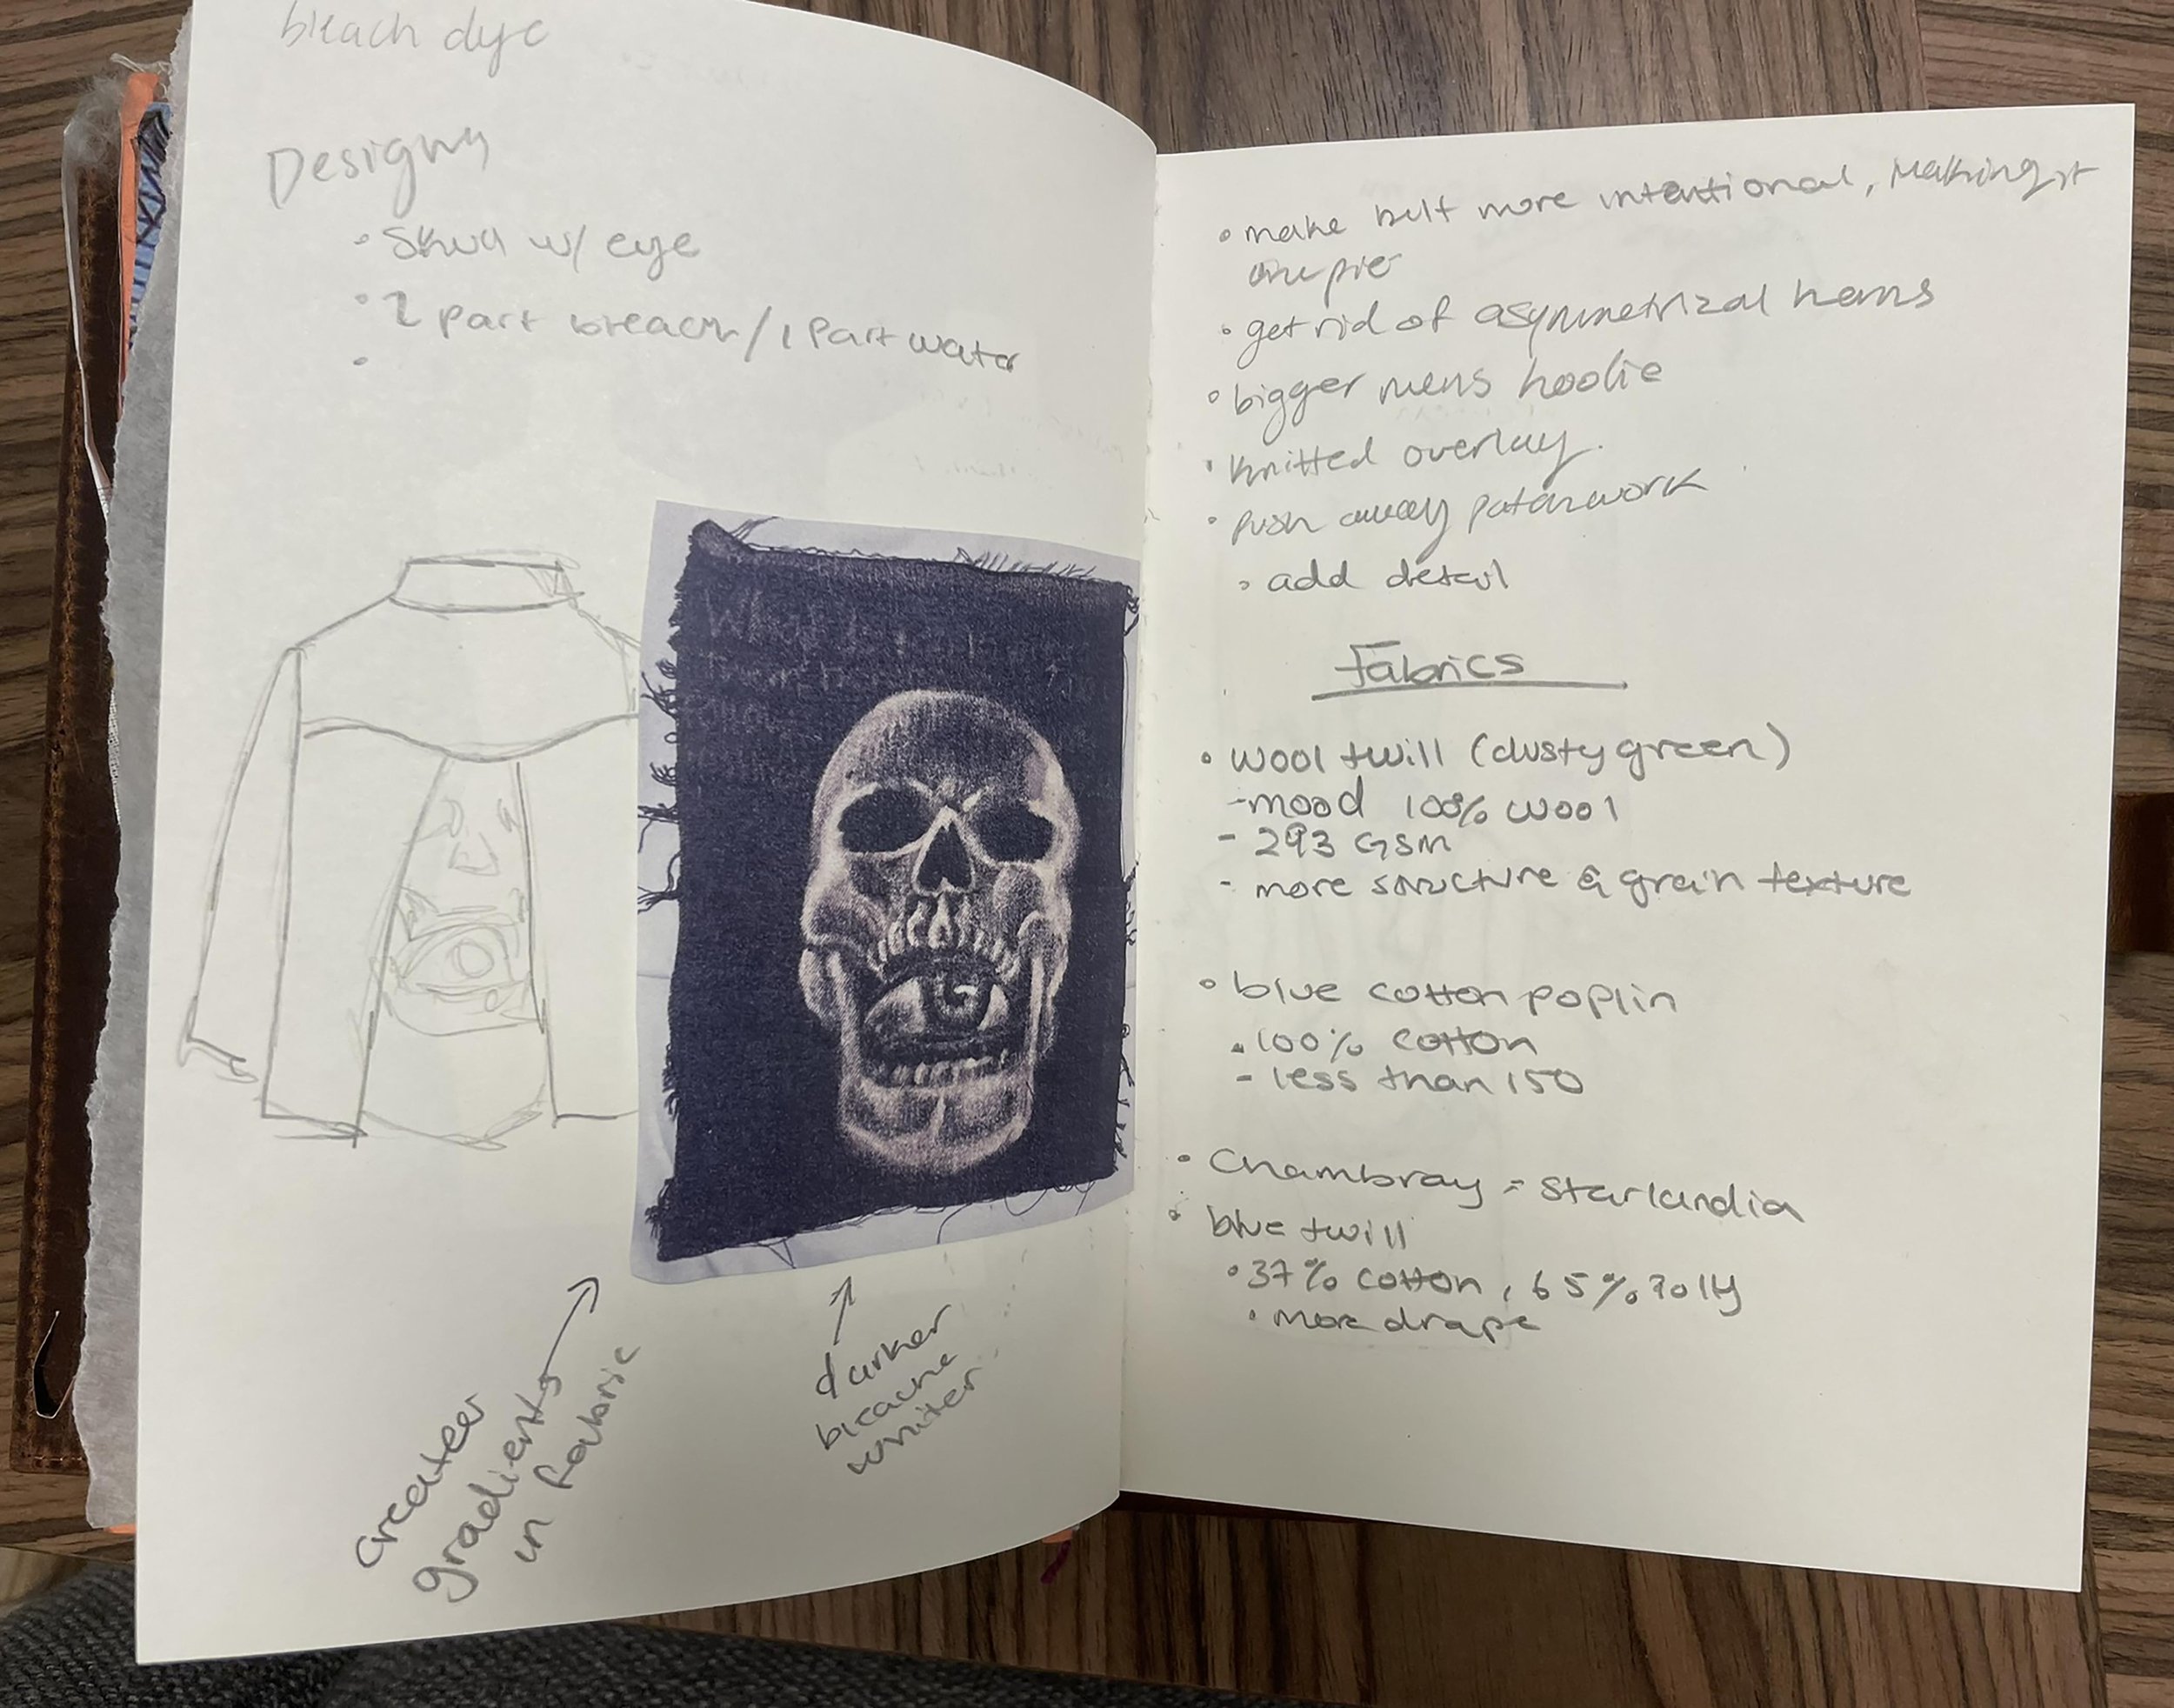 bleach dye
Designs
• Skull w/ eye
• 2 part bleach / 1 part water
•
darker
bleache
whiter
createer
gradients
in fabric
• make belt more intentional, making it
• get rid of asymmetrizal hems
• bigger mens hoodie
• knitted overlay.
• push away patchwork
• add detail
Fabrics
• wool twill (dusty green)
- mood 100% wool
- 293 GSM
- more structure & grain texture
• blue cotton poplin
- 100% cotton
- less than 150
• Chambray = starlandia
• blue twill
• 37% cotton, 65% Poly
• more drape